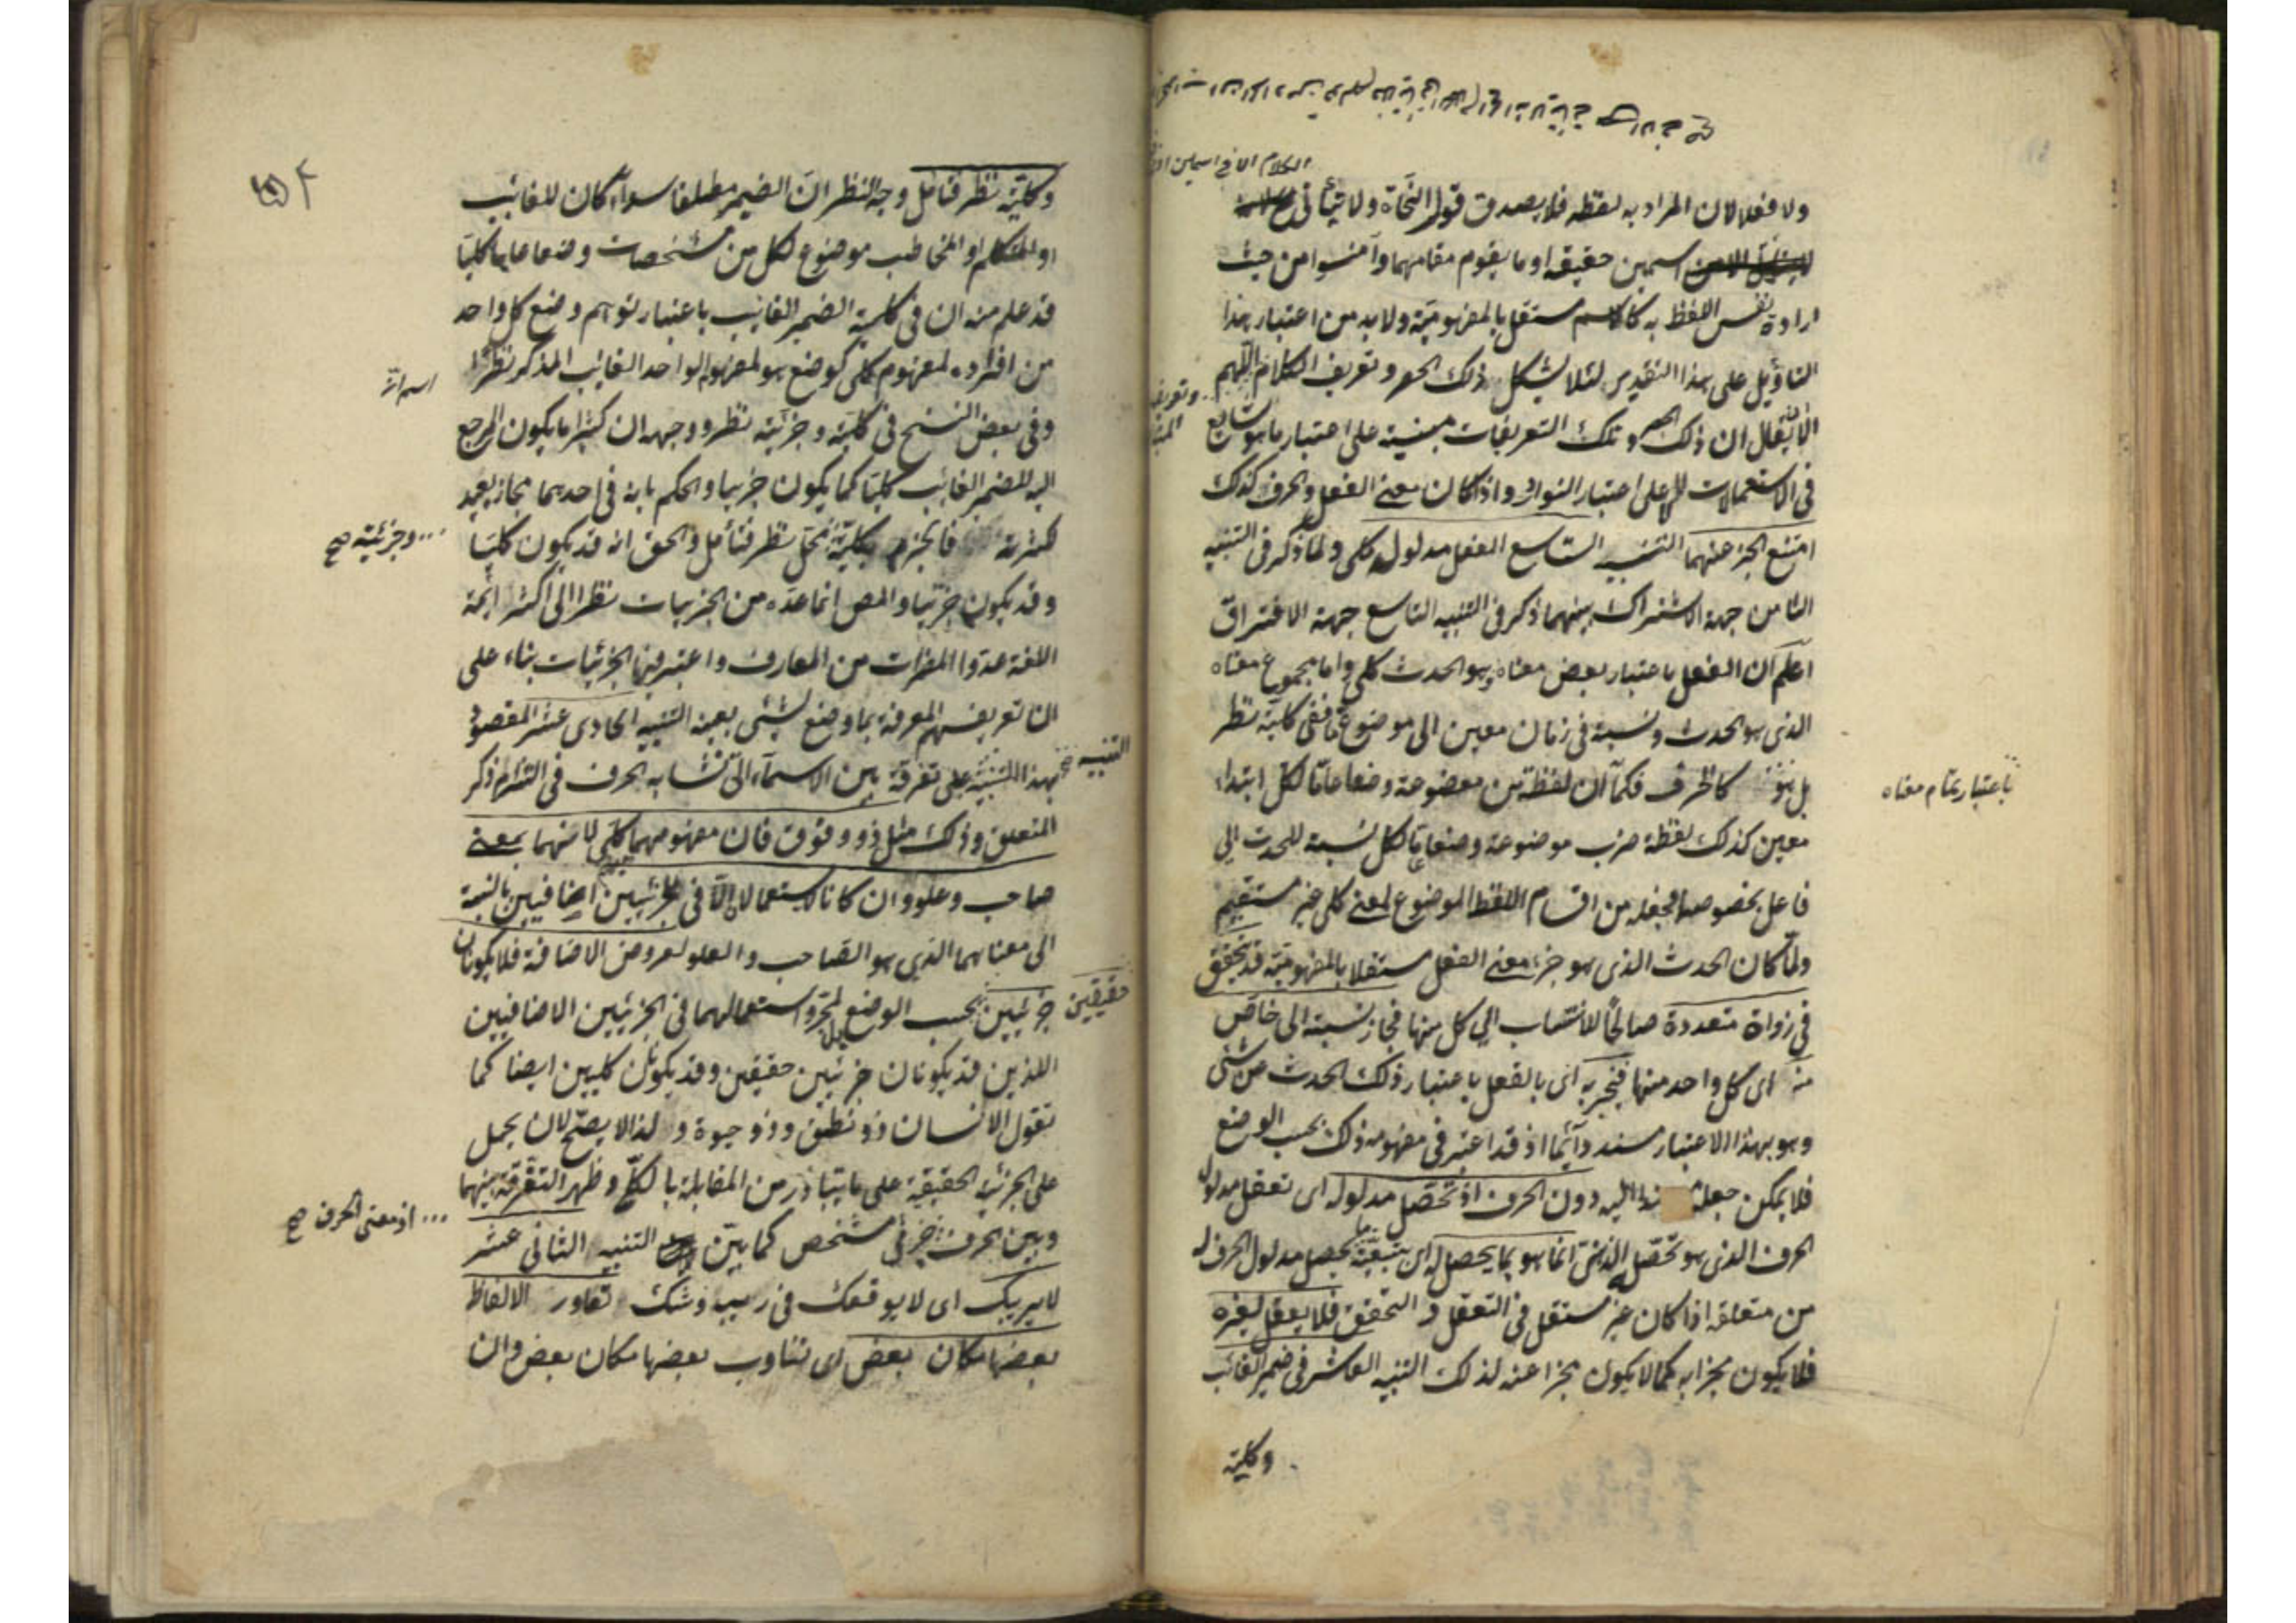 الكلام الا في اسمين او
ولا فعلا لان المراد به لفظه فلا يصدق قول النحاة ولا يتأتى
اسمين حقيقة او ما يقوم مقامهما وآمنوا من حيث
ارادة نفس اللفظ به كالاسم مستقل بالمفهومية ولا بد من اعتبار هذا
التاويل على هذا التقدير لئلا يشكل ذلك الحصر وتعريف الكلام اللهم
الا ان يقال ان ذلك الحصر وتلك التعريفات مبنية على اعتبار ما هو شايع
في الاستعمالات لا على اعتبار النوادر واذا كان معنى الفعل والحرف كذلك
امتنع الخبر عنهما التنبيه التاسع الفعل مدلوله كلي ولما ذكر في التنبيه
الثامن جهة الاشتراك بينهما ذكر في التنبيه التاسع جهة الافتراق
اعلم ان الفعل باعتبار بعض معناه وهو الحدث كلي واما مجموع معناه
الذي هو الحدث ونسبة في زمان معين الى موضوع ما ففي كليته نظر
بل هو كالحرف فكما ان لفظة من موضوعة وضعا عاما لكل ابتداء
باعتبار تمام معناه
معين كذلك لفظة ضرب موضوعة وضعا عاما لكل نسبة للحدث الى
فاعل بخصوصها فجعله من اقسام اللفظ الموضوع لمعنى كلي غير مستقيم
ولما كان الحدث الذي هو جزء معنى الفعل مستقلا بالمفهومية قد يتحقق
في ذوات متعددة صالحا للانتساب الى كل منها فجاز نسبته الى خاص
منه اى كل واحد منها فيخبر به اى بالفعل باعتبار ذلك الحدث عن شئ
وهو بهذا الاعتبار مسند دائما اذ قد اعتبر في مفهومه ذلك بحسب الوضع
فلا يمكن جعله مسندا اليه دون الحرف اذ تحصل مدلوله اى تعقل مدلول
الحرف الذي هو تحصله الذهني انما هو بما يحصل له اى بتبعية ما يحصل مدلول الحرف له
من متعلقه اذا كان غير مستقل في التعقل و التحقق فلا يعقل لغيره
فلا يكون مخبرا به كما لا يكون مخبرا عنه لذلك التنبيه العاشر في ضمير الغائب
وكليته
وكليته نظر فتأمل وجه النظر ان الضمير مطلقا سواء كان للغائب
او المتكلم او المخاطب موضوع لكل من مشخصات وضعا عاما كليا
قد علم منه ان في كلية الضمير الغايب باعتبار توهم وضع كل واحد
من افراده لمفهوم كلي كوضع هو لمفهوم الواحد الغائب المذكر نظرا
وفي بعض النسخ في كليته وجزئيته نظر ووجهه ان كثيرا ما يكون المرجع
اليه للضمير الغائب كليا كما يكون جزئيا والحكم بانه في احدهما مجاز بعيد
لكثرته فالجزم بكليته محل نظر فتأمل والحق انه قد يكون كليا
... وجزئيته صح
وقد يكون جزئيا والمص انما عده من الجزئيات نظرا الى اكثر ائمة
اللغة عدوا المضمرات من المعارف واعتبر فيها الجزئيات بناء على
ان تعريفهم المعرفة بما وضع لشئ بعينه التنبيه الحادي عشر المقصود
بهذا التنبيه على تفرقة بين الاسماء التي تشابه الحرف في التزام ذكر
التنبيه صح
المتعلق وذلك مثل ذو وفوق فان مفهومهما كلي لانهما بمعنى
صاحب وعلو وان كانا لا يستعملان الا في جزئيين اضافيين بالنسبة
الى معناهما الذي هو الصاحب والعلو لعروض الاضافة فلا يكونان
جزئيين بحسب الوضع لمجرد استعمالهما في الجزئيين الاضافيين
حقيقيين
اللذين قد يكونان جزئيين حقيقين وقد يكونان كليين ايضا كما
تقول الانسان ذو نطق وذو حيوة و لهذا لا يصح لان يحمل
على الجزئية الحقيقية على ما يتبادر من المقابلة بالكلي وظهر التفرقة بينهما
وبين الحرف جزئي مشخص كما بين التنبيه الثاني عشر
... اذ معنى الحرف صح
لا يريبك اى لا يوقعك في ريب وشك تعاور الالفاظ
بعضها مكان بعض اى تناوب بعضها مكان بعض وان